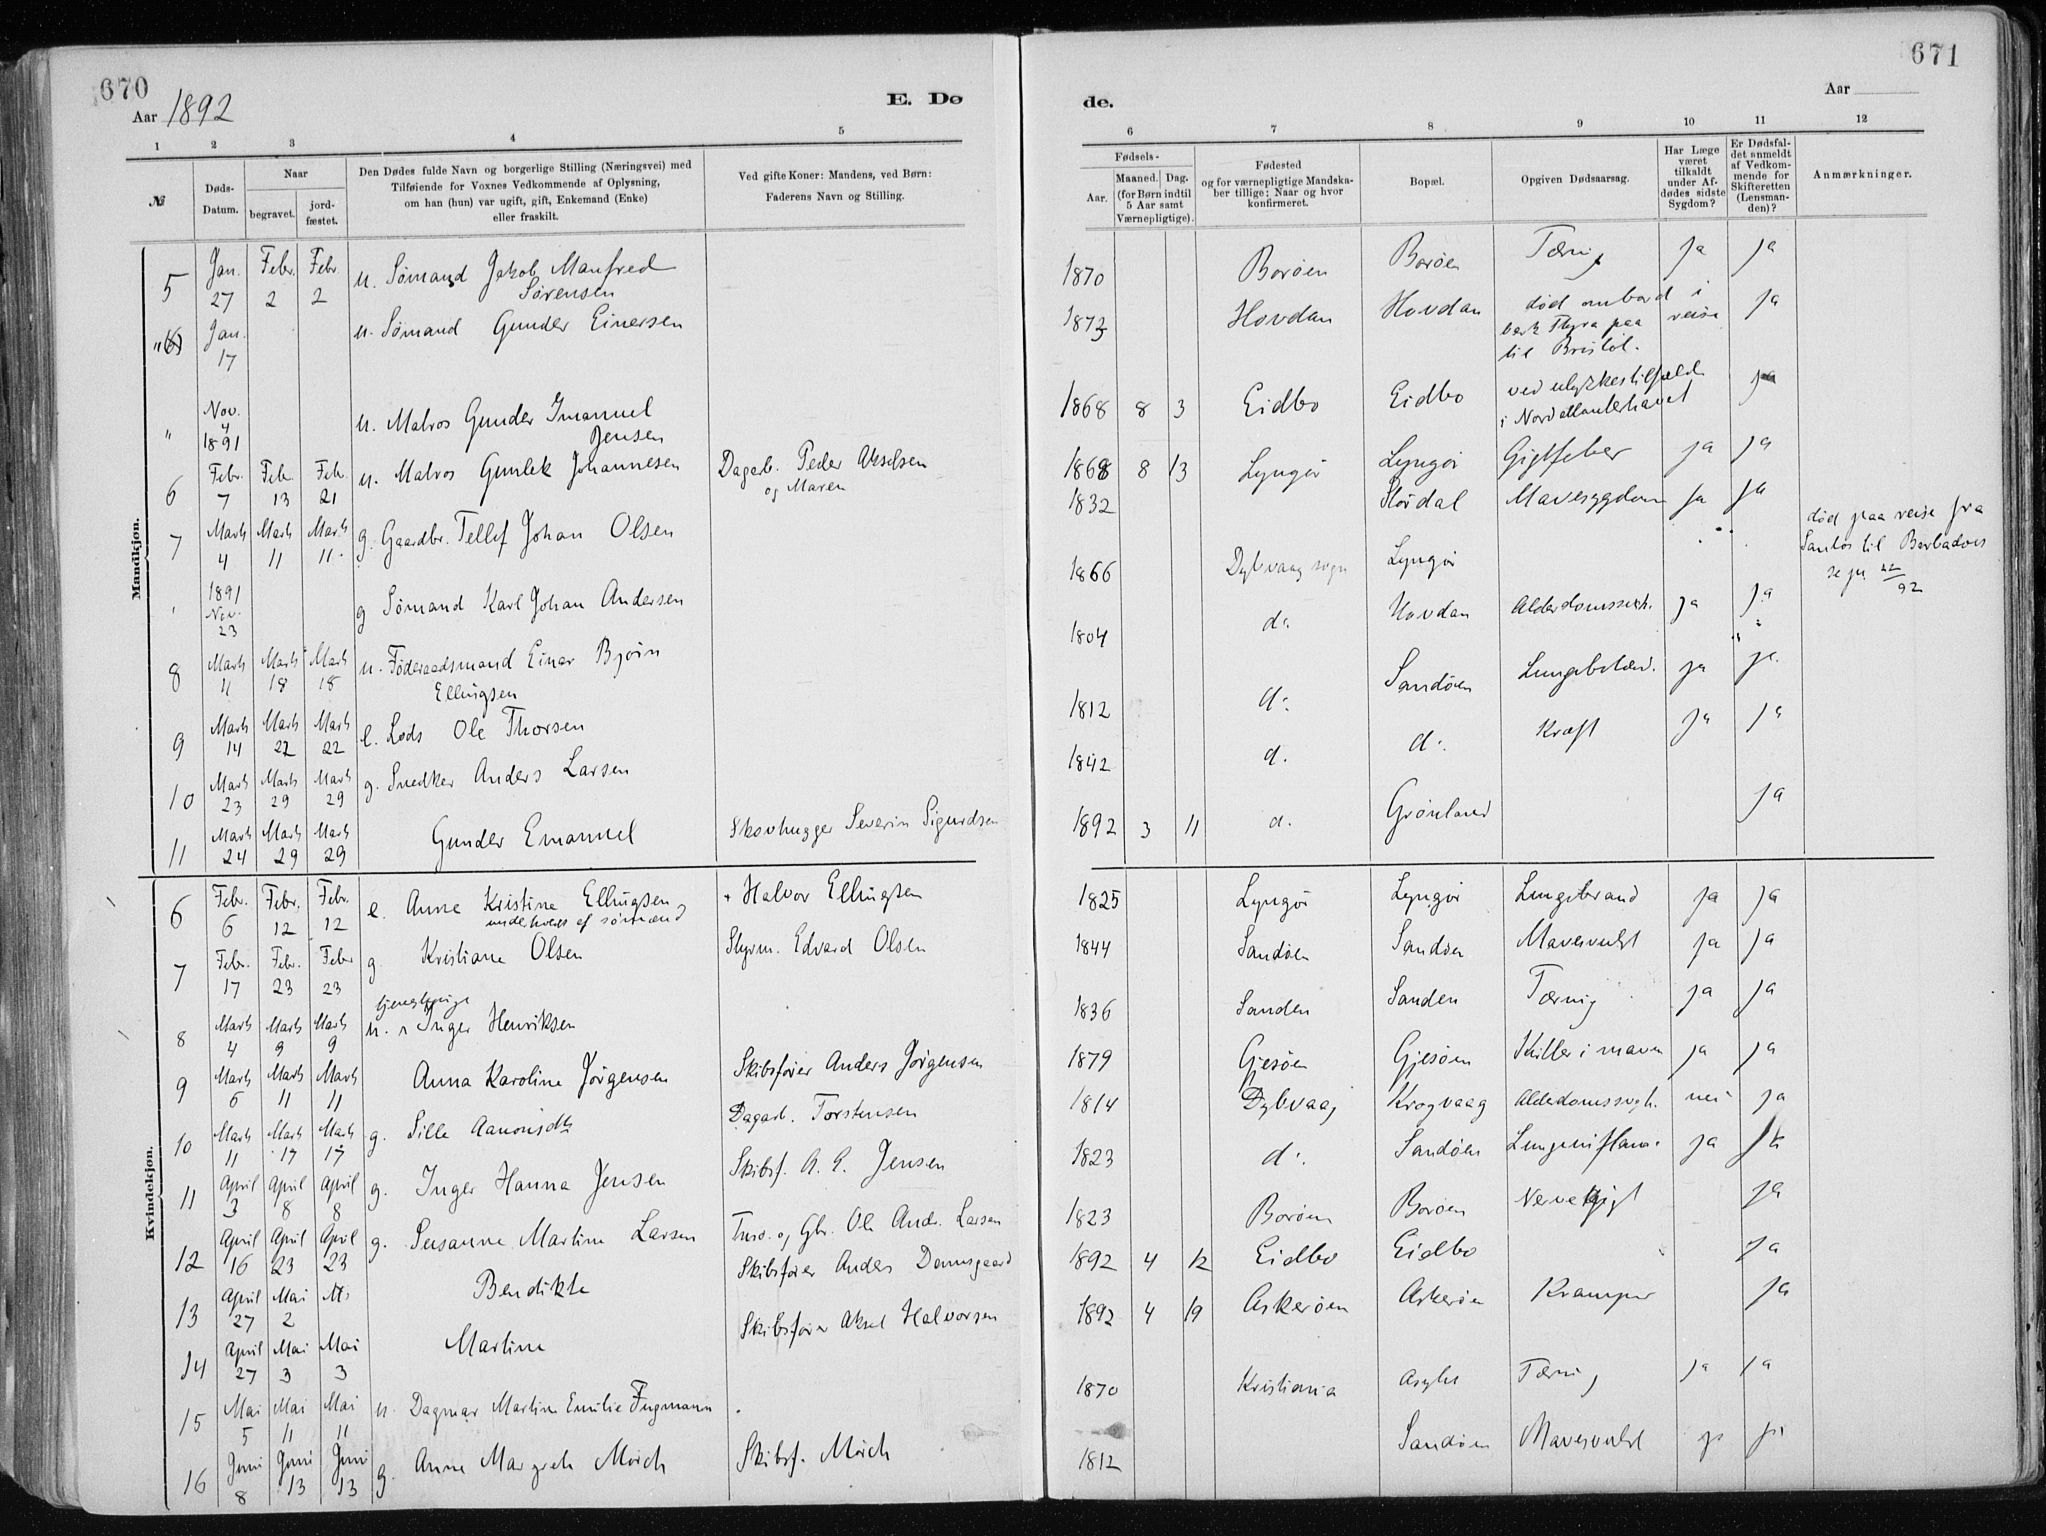 670
Aar 1892
E. Dø
1 2 3 4 5
№
Døds-
Datum.
Naar
begravet.
jord-
fæstet.
Den Dødes fulde Navn og borgerlige Stilling (Næringsvei) med
Tilføiende for Voxnes Vedkommende af Oplysning,
om han (hun) var ugift, gift, Enkemand (Enke)
eller fraskilt.
Ved gifte Koner: Mandens, ved Børn:
Faderens Navn og Stilling.
Mandkjøn.
5 Jan. 27 Febr. 2 Febr. 2 u. Sømand Jakob Manfred
Sørensen
" Jan. 17 u. Sømand Gunder Einersen
" Nov. 4 1891 u. Matros Gunder Imanuel
Jensen
6 Febr. 7 Febr. 13 Feb. 21 u. Matros Gunlek Johannesen Dagarb. Peder Akselsen
og Maren
7 Marts 4 Marts 11 Marts 11. g. Gaardbr. Tellef Johan Olsen
1891 Nov. 23 g Sømand Karl Johan Andersen
8 Marts 11 Marts 18 Marts 18 u. Føderaadsmand Einar Bjørn
Ellingsen
9 Marts 14 Marts 22 Marts 22 e. Lods Ole Thorsen
10 Marts 23 Marts 29 Marts 29 g. Snedker Anders Larsen
11 Marts 24 Marts 29 Marts 29 Gunder Emanuel Skovhugger Severin Sigurdsen
Kvindekjøn.
6 Febr. 6 Febr. 12 Febr. 12 e. Anne Kristine Ellingsen + Halvor Ellingsen
underholdt af sømænd
7 Febr. 17 Febr. 23 Febr 23 g. Kristiane Olsen Styrm. Edvard Olsen
tjenestepige
8 Marts 4 Marts 9 Marts 9 u. Inger Henriksen
9 Marts 6 Marts 11 Marts 11 Anna Karoline Jørgensen Skibsfører Anders Jørgensen
10 Marts 11 Marts 17 Marts 17 g. Sille Aanonsdtr Dagarb. Torstensen
11 April 3 April 8 April 8 g. Inger Hanna Jensen Skibsf. A. E. Jensen
12 April 16 April 23 April 23 g. Susanne Martine Larsen Ole Andr. Larsen
13 April 27 Mai 2 Bendikte Skibsfører Anders Dannsgaard
14 April 27 Mai 3 Mai 3 Martine Skibsfører Aksel Halvorsen
15 Mai 5 Mai 11 Mai 11 u. Dagmar Martine Emilie Fugmann
16 Juni 8 Juni 13 Juni 13 g. Anne Margrete Mørch Skibsf. Mørch
671
Aar
de.
6 7 8 9 10 11 12
Fødsels-
Aar.
Maaned. Dag.
(for Børn indtil
5 Aar samt
Værnepligtige).
Fødested
og for værnepligtige Mandska-
ber tillige: Naar og hvor
konfirmeret.
Bopæl.
Opgiven Dødsaarsag.
Har Læge
været
tilkaldt
under Af-
dødes sidste
Sygdom?
Er Dødsfal-
det anmeldt
af Vedkom-
mende for
Skifteretten
(Lensman-
den)?
Anmærkninger.
1870 Borøen Borøen Tæring ja ja
1873 Hovdan Hovdan død ombord i ja
bark Thyra paa reise
til Bristol.
1868 8 3 Eidbo Eidbo ved ulykkestilfælde ja
i Nordatlanterhavet
1868 8 13 Lyngør Lyngør Gigtfeber ja ja
1832 Størdal Mavesygdom ja ja
1866 Dybvaag sogn Lyngør død paa reise fra
Santos til Barbados
1804 do Hovdan Alderdomssvgh. ja ja
1812 do Sandøen Lungebetænd. ja ja
1842 d. do. Kræft ja ja
1892 3 11 d. Grønland ja
1825 Lyngør Lyngør Lungebrand ja ja
1844 Sandøen Sandøen Mavesvulst ja ja
1836 Sanden Sanden Tæring ja ja
1879 Gjesøen Gjesøen i maven ja ja
1814 Dybvaag Krogvaag Alderdomssvgh. nei ja
1823 do. Sandøen Lungeinflam. ja ja
1823 Borøen Borøen Nervegigt ja
1892 4 12 Eidbo Eidbo ja
1892 4 19 Askerøen Askerøen Kramper ja
1870 Kristiania Asylet Tæring ja ja
1812 Sandøen Mavesvulst ja ja